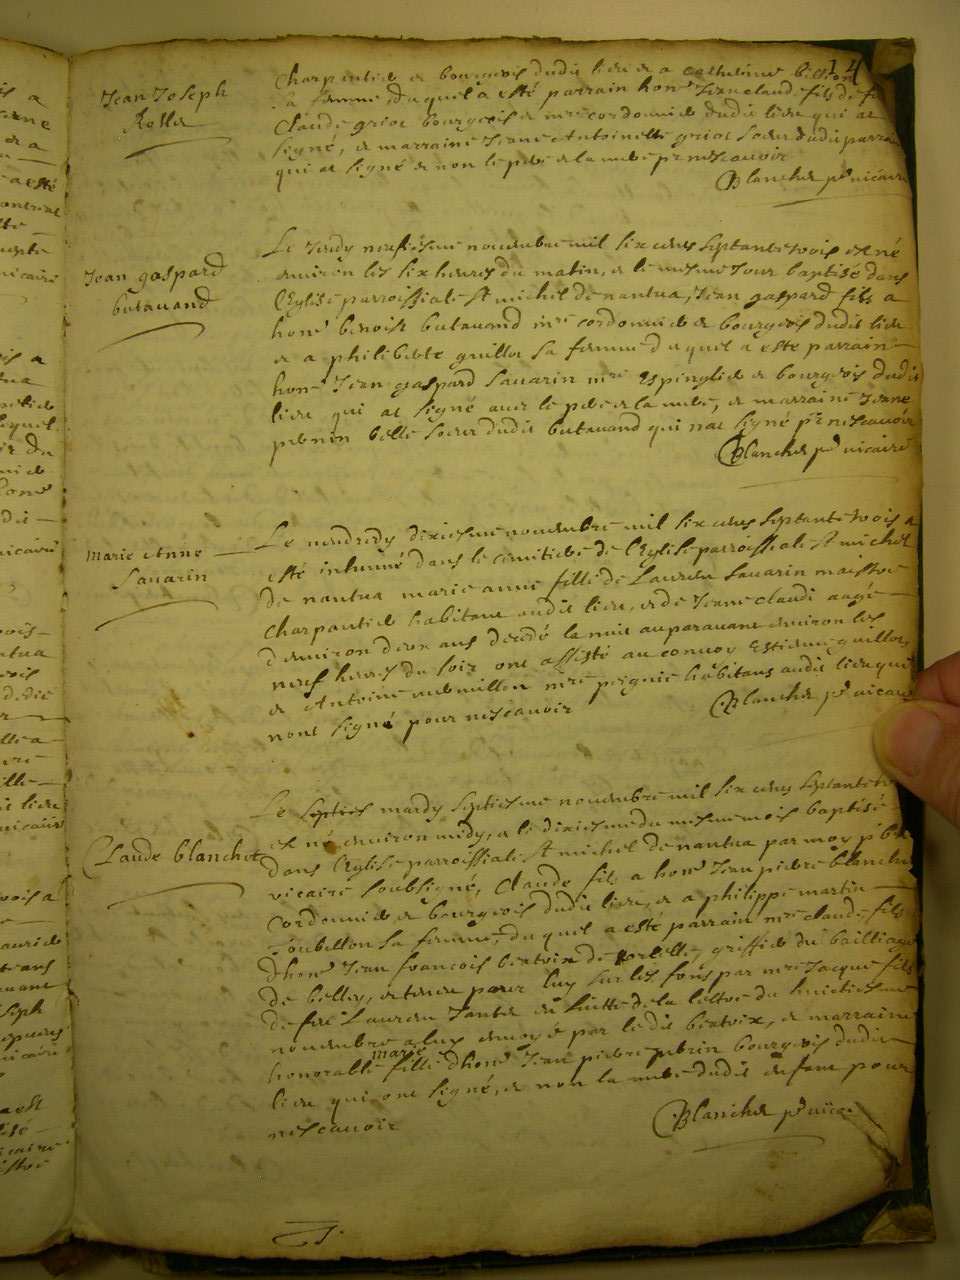 14
Jean Joseph
Rolle
charpentier et bourgeois dudit lieu et a catherine
sa femme duquel a esté parrain honᵉ Jean claude fils de
Claude griot bourgeois et mʳᵉ cordonnier dudit lieu qui at
signé, et marraine Jeane Antoinette griot soeur dudit parrain
qui at signé et non le pere et la mere pʳ ne scavoir
Blanchet pʳ vicaire
Jean gaspard
butavand
Le Jeudy neufiesme novembre mil six cens septante trois est né
environ les six heures du matin, et le mesme Jour baptisé dans
l'Eglise parroissiale St michel de nantua, Jean gaspard fils a
honᵉ benoist butavand mʳᵉ cordonnier et bourgeois dudit lieu
et a philiberte guillot sa femme duquel a esté parrain
honᵉ Jean gaspard Savarin mʳᵉ Espinglier et bourgeois dudit
lieu qui at signé avec le pere et la mere, et marraine Jeane
pernin belle soeur dudit butavand qui nat signé pʳ ne scavoir
Blanchet pʳ vicaire
Marie Anne
Savarin
Le vendredy dixiesme novembre mil six cens septante trois a
esté inhumé dans le cimitiere de l'Eglise parroissiale St michel
de nantua marie anne fille de Laurent Savarin maistre
charpantier habitant audit lieu, et de Jeane claudi aagé
d'environ deux ans decedé la nuit auparavant environ les
neuf heures du soir ont assisté au convoy Estienne guillot,
et Antoine mʳᵉ peignier habitans audit lieu qui
nont signé pour ne scavoir
Blanchet pʳ vicaire
Claude blanchet
Le septies mardy septiesme novembre mil six cens septante
est né environ midy, et le dixiesme du mesme mois baptisé
dans l'Eglise parroissiale St michel de nantua par moy pᵇʳᵉ
vicaire soubsigné, Claude fils a honᵉ Jean pierre blanchet
cordonnier et bourgeois dudit lieu, et a philippe martin
Joubellon sa femme, duquel a esté parrain mʳᵉ claude fils
d'honᵉ Jean francois de griffier du bailliage
de belley, et tenu pour luy sur les fons par mʳᵉ Jacque fils
de feu Laurent Jantet en suitte de la lettre du huictiesme
novembre a luy envoyé par ledit, et marraine
honorable marie fille d'honᵉ Jean pierre bourgeois dudit
lieu qui ont signé, et non la mere dudit enfant pour
ne scavoir
Blanchet pʳ